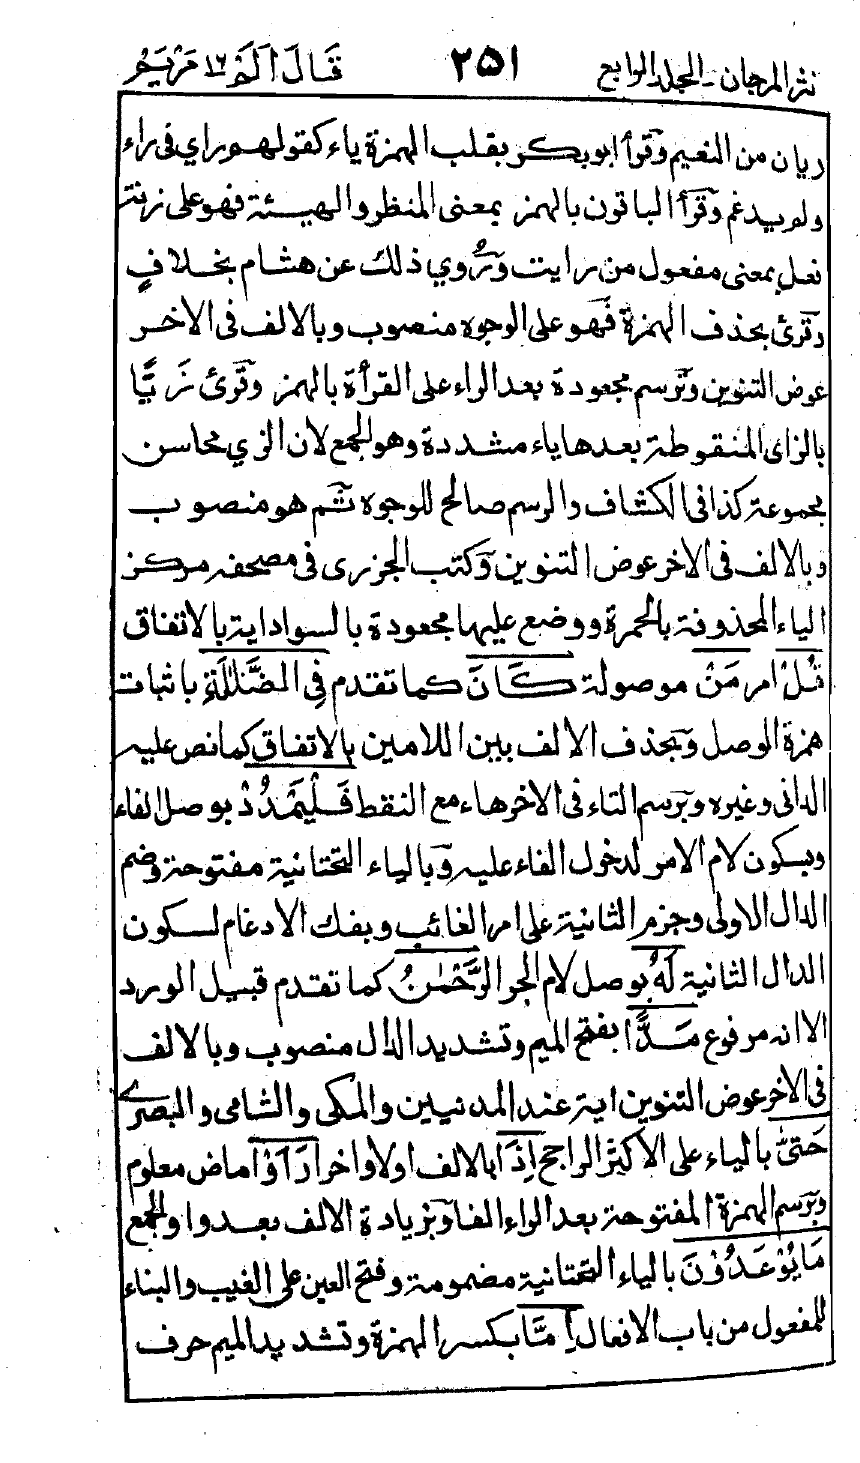 نثر المرجان - الجلد الرابع ٢٥١ قَالَ اَلَمْ ١٦ مَرْيَمْ
ريان من النعيم وقرأ ابو بكر بقلب الهمزة ياء كقولهم راي في راء
ولم يدغم وقرأ الباقون بالهمز بمعنى المنظر والهيئة فهو على زنة
نعل بمعنى مفعول من رايت وَرُوي ذلك عن هشام بخلافٍ
وقرئ بحذف الهمزة فهو على الوجوه منصوب وبالالف في الاخر
عوض التنوين وترسم مجعودة بعد الراء على القرأة بالهمز وقرئ زَيًّا
بالزاي المنقوطة بعدها ياء مشددة وهو الجمع لان الزي محاسن
مجموعة كذا في الكشاف والرسم صالح للوجوه ثم هو منصوب
وبالالف في الاخر عوض التنوين وكتب الجزري في مصحفه مركز
الياء المحذوفة بالحمرة ووضع عليها مجعودة بالسواد اية بالاتفاق
قُلْ امر مَنْ موصولة كَانَ كما تقدم فِي الضَّلٰلَةِ باثبات
همزة الوصل وبحذف الالف بين اللامين بالاتفاق كما نص عليه
الداني وغيره وبرسم التاء في الاخر هاء مع النقط فَلْيَمْدُدْ بوصل الفاء
وبسكون لام الامر لدخول الفاء عليه وبالياء التحتانية مفتوحة وضم
الدال الاولى وجزم الثانية على امر الغائب وبفك الادغام لسكون
الدال الثانية لَهُ بوصل لام الجر الرَّحْمٰنُ كما تقدم قبيل الورد
الا انه مرفوع مَدًّا بفتح الميم وتشديد الدال منصوب وبالالف
في الاخر عوض التنوين اية عند المدنيين والمكي والشامي والبصرے
حَتّٰى بالياء على الاكثر الراجح اِذَا بالالف اولا واخرا رَاَوْا ماض معلوم
وبرسم الهمزة المفتوحة بعد الراء الفا وبزيادة الالف بعد واو الجمع
مَا يُوْعَدُوْنَ بالياء التحتانية مضمومة وفتح العين على الغيب والبناء
للمفعول من باب الافعال اِمَّا بكسر الهمزة وتشديد الميم حرف